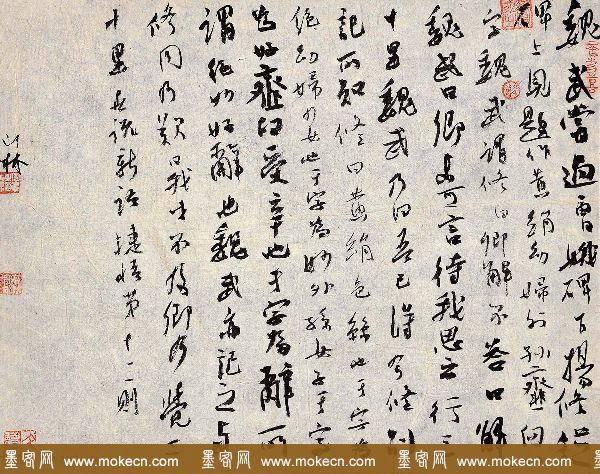 魏武嘗過曹娥碑下楊修從
碑上見題作黄絹幼婦外孫齏臼
字魏武謂修曰卿解不答曰解
魏武曰卿未可言待我思之行三
十里魏武乃曰吾已得令修別
記所知修曰黄絹色絲也于字為
絕幼婦少女也于字為妙外孫女子于字
為好齏臼受辛也于字為辭所
謂絕妙好辭也魏武亦記之與
修同乃歎曰我才不及卿乃覺三
十里世說新語捷悟第十一則
墨客网 www.mokecn.com 墨客网 www.mokecn.com 墨客网 www.mokecn.com